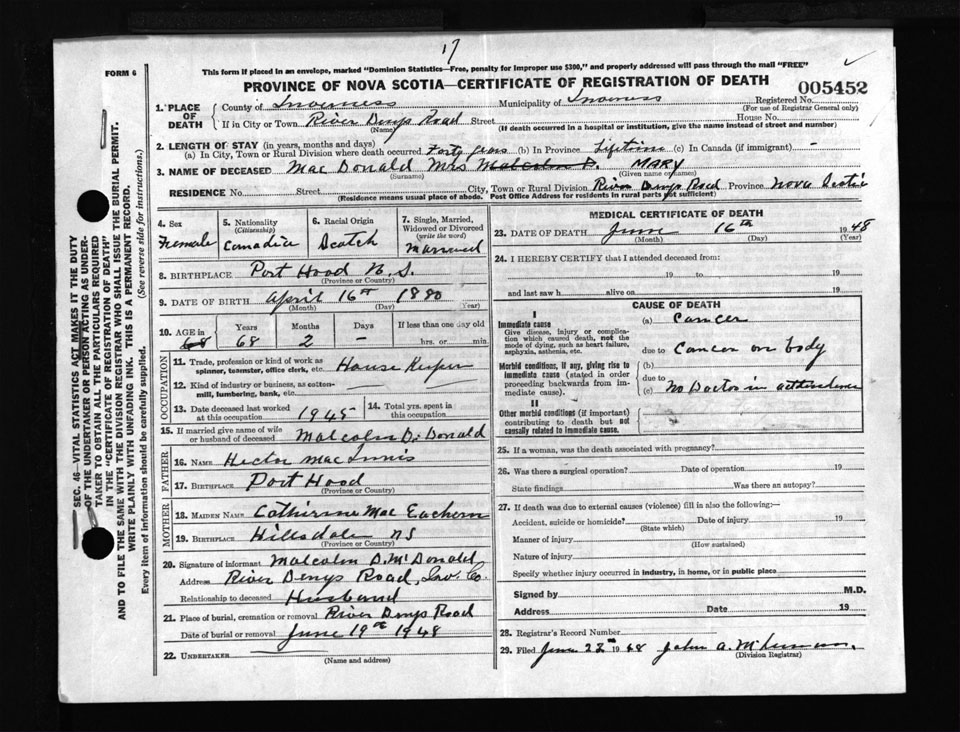 17
This form if placed in an envelope, marked "Dominion Statistics—Free, penalty for improper use $300," and properly addressed will pass through the mail "FREE"
FORM 6
PROVINCE OF NOVA SCOTIA—CERTIFICATE OF REGISTRATION OF DEATH
005452
1. PLACE OF DEATH
County of Inverness Municipality of Inverness Registered No.
(For use of Registrar General only)
If in City or Town River Denys Road Street House No.
(Name) (If death occurred in a hospital or institution, give the name instead of street and number)
2. LENGTH OF STAY (in years, months and days)
(a) In City, Town or Rural Division where death occurred Forty years (b) In Province Lifetime (c) In Canada (if immigrant) -
3. NAME OF DECEASED Mac Donald Mrs Malcolm D. MARY
(Surname) (Given name or names)
RESIDENCE No. Street City, Town or Rural Division River Denys Road Province Nova Scotia
(Residence means usual place of abode. Post Office Address for residents in rural parts not sufficient)
4. Sex
Female
5. Nationality
(Citizenship)
Canadian
6. Racial Origin
Scotch
7. Single, Married, Widowed or Divorced
(write the word)
Married
8. BIRTHPLACE Port Hood N.S.
(Province or Country)
9. DATE OF BIRTH April 16th 1880
(Month) (Day) (Year)
10. AGE in
68
Years Months Days If less than one day old
68 2 - hrs. or min.
OCCUPATION
11. Trade, profession or kind of work as spinner, teamster, office clerk, etc. House Keeper
12. Kind of industry or business, as cotton-mill, lumbering, bank, etc.
13. Date deceased last worked at this occupation 1945
14. Total yrs. spent in this occupation
15. If married give name of wife or husband of deceased Malcolm D. Donald
FATHER
16. NAME Hector Mac Innis
17. BIRTHPLACE Port Hood
(Province or Country)
MOTHER
18. MAIDEN NAME Catherine Mac Eachern
19. BIRTHPLACE Hillsdale NS
(Province or Country)
20. Signature of informant Malcolm D. McDonald
Address River Denys Road, Inv. Co.
Relationship to deceased Husband
21. Place of burial, cremation or removal River Denys Road
Date of burial or removal June 19th 1948
22. UNDERTAKER
(Name and address)
MEDICAL CERTIFICATE OF DEATH
23. DATE OF DEATH June 16th 1948
(Month) (Day) (Year)
24. I HEREBY CERTIFY that I attended deceased from:
19 to 19
and last saw h alive on 19
CAUSE OF DEATH
I
Immediate cause
Give disease, injury or complication which caused death, not the mode of dying, such as heart failure, asphyxia, asthenia, etc.
(a) Cancer
due to Cancer on body
Morbid conditions, if any, giving rise to immediate cause (stated in order proceeding backwards from immediate cause).
(b)
due to
(c) No Doctor in attendance
II
Other morbid conditions (if important) contributing to death but not causally related to immediate cause.
25. If a woman, was the death associated with pregnancy?
26. Was there a surgical operation? Date of operation 19
State findings Was there an autopsy?
27. If death was due to external causes (violence) fill in also the following:—
Accident, suicide or homicide? Date of injury 19
(State which)
Manner of injury
(How sustained)
Nature of injury
Specify whether injury occurred in industry, in home, or in public place
Signed by M.D.
Address Date 19
28. Registrar's Record Number
29. Filed June 22nd 1948 John A.
(Division Registrar)
SEC. 46—VITAL STATISTICS ACT MAKES IT THE DUTY
OF THE UNDERTAKER OR PERSON ACTING AS UNDER-
TAKER TO OBTAIN ALL THE PARTICULARS REQUIRED
IN THE "CERTIFICATE OF REGISTRATION OF DEATH"
AND TO FILE THE SAME WITH THE DIVISION REGISTRAR WHO SHALL ISSUE THE BURIAL PERMIT.
WRITE PLAINLY WITH UNFADING INK. THIS IS A PERMANENT RECORD.
Every item of information should be carefully supplied. (See reverse side for instructions).